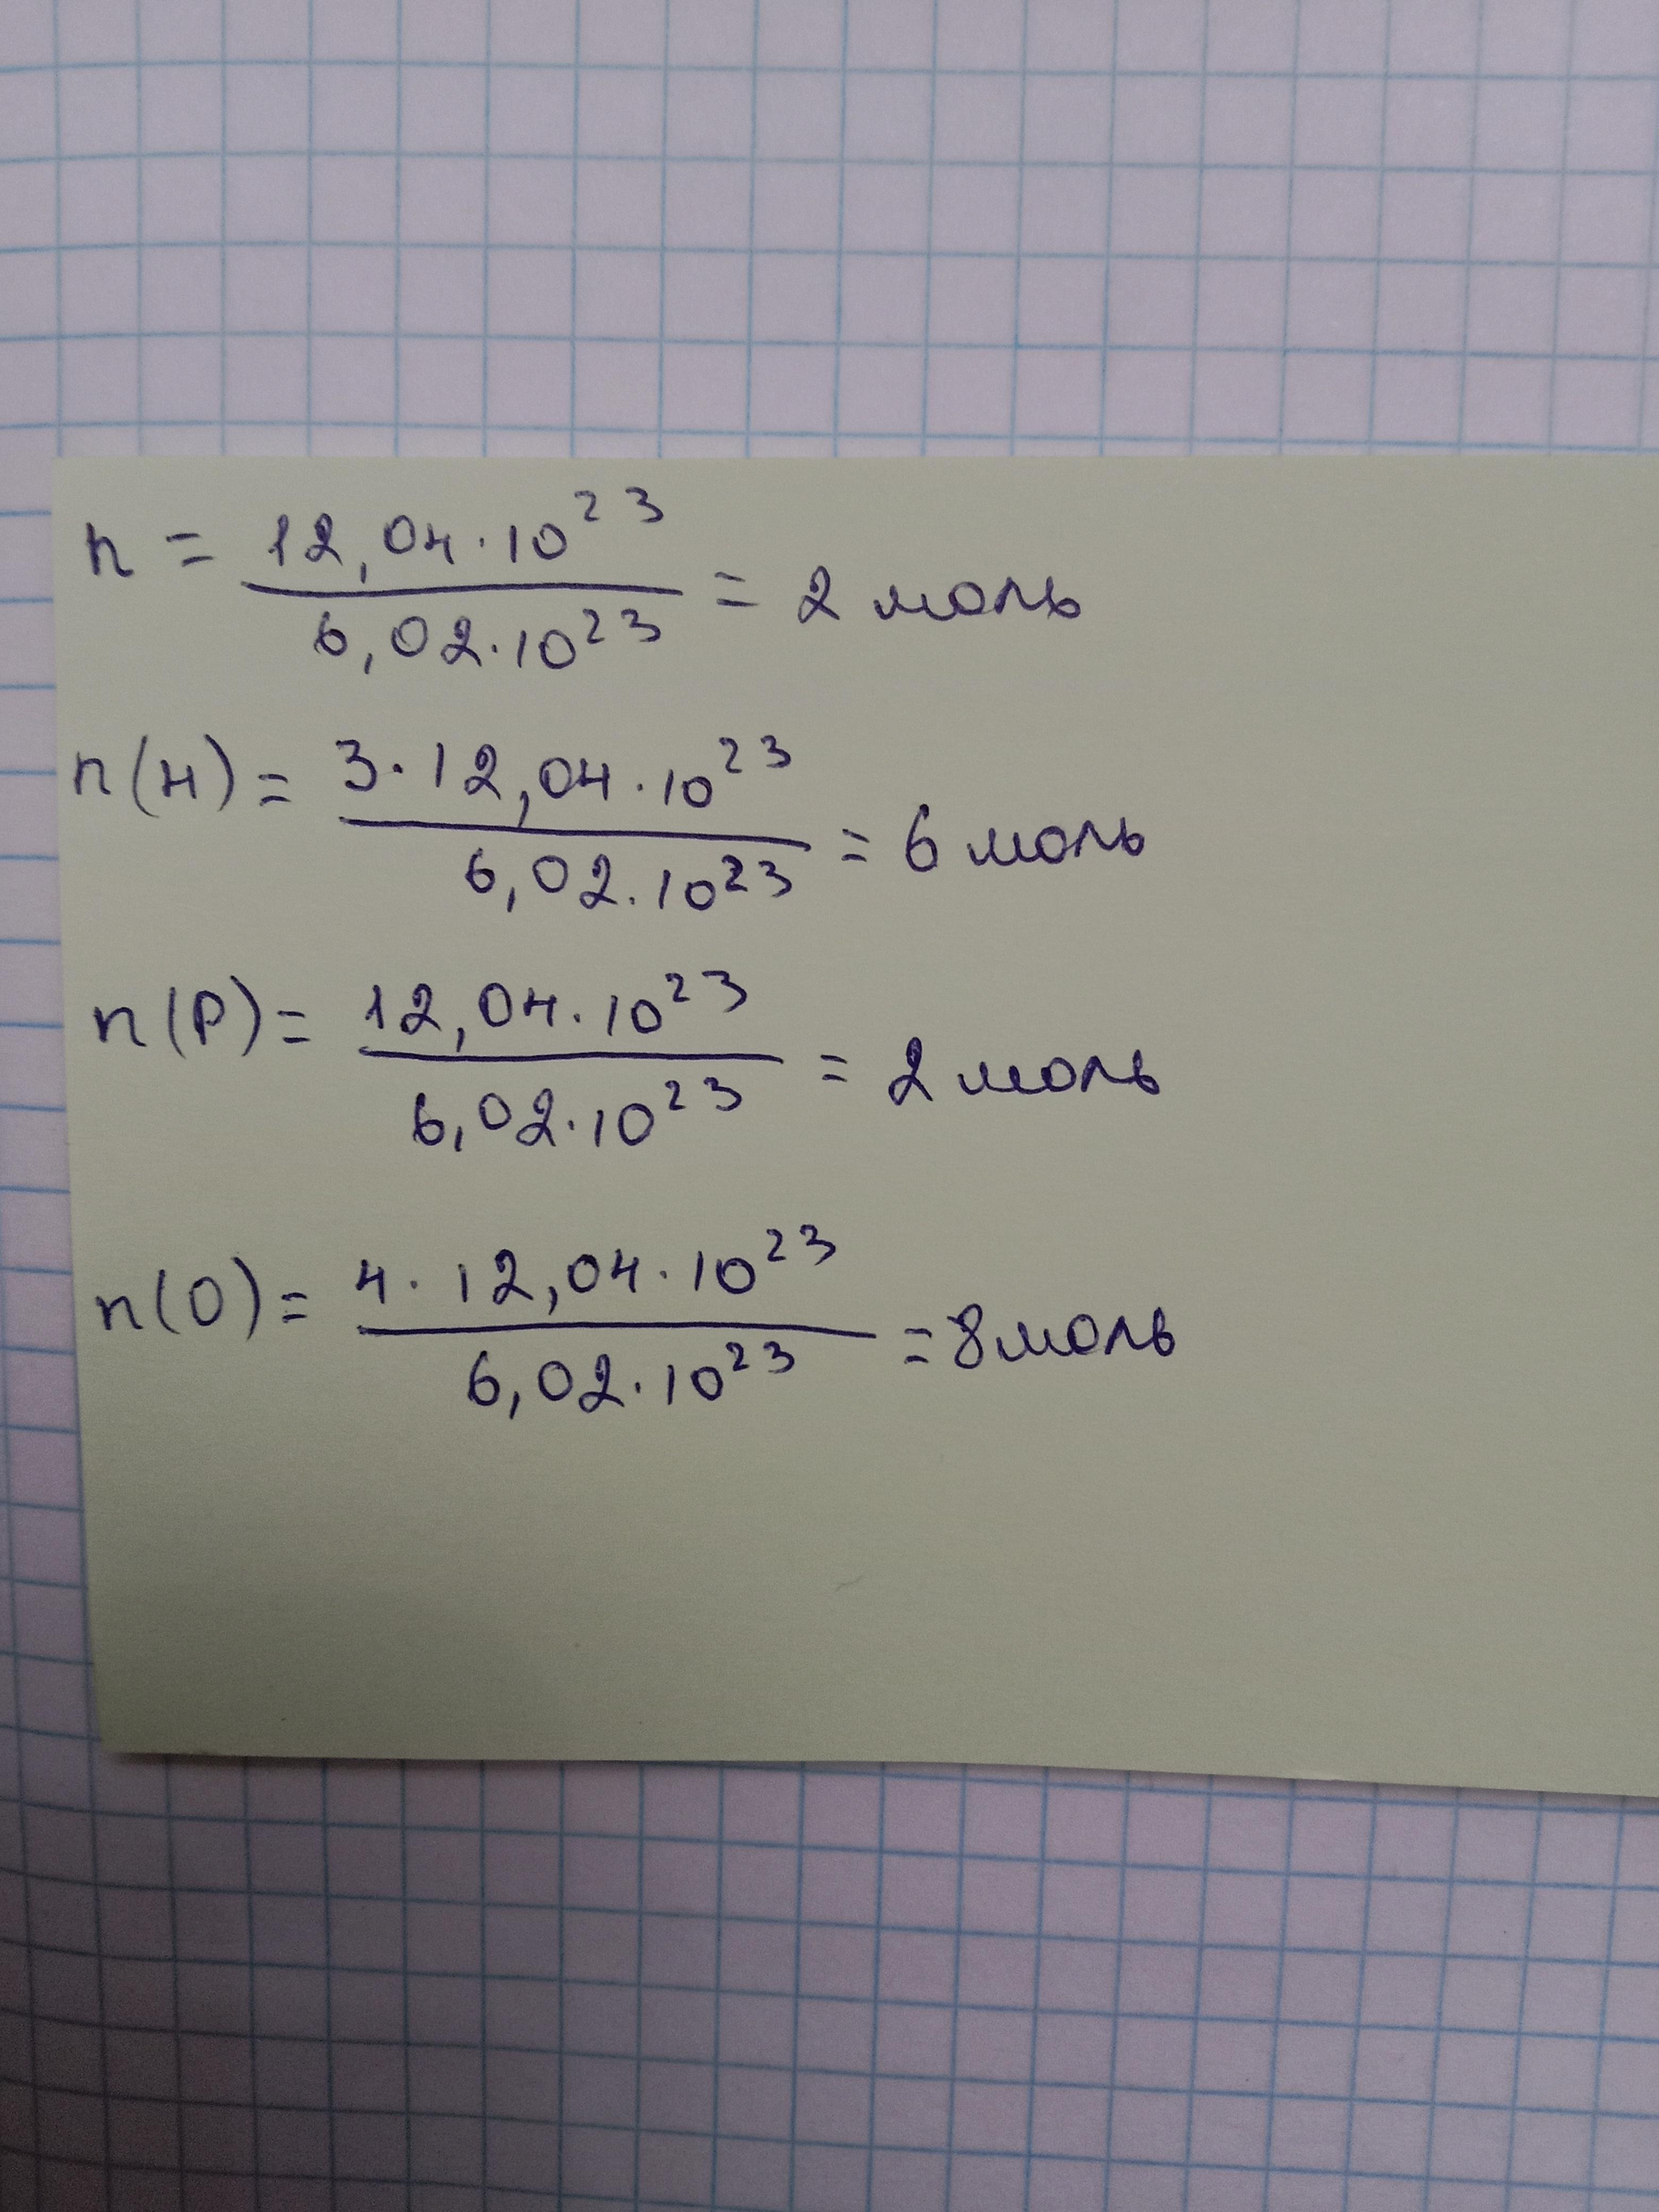 n = 12,04·10²³ / 6,02·10²³ = 2 моль
n(H) = 3·12,04·10²³ / 6,02·10²³ = 6 моль
n(P) = 12,04·10²³ / 6,02·10²³ = 2 моль
n(O) = 4·12,04·10²³ / 6,02·10²³ = 8 моль